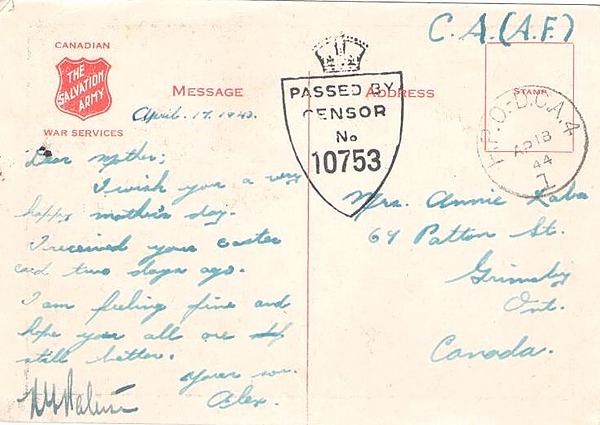 C.A.(A.F.)
CANADIAN
THE
SALVATION
ARMY
WAR SERVICES
MESSAGE
ADDRESS
STAMP
PASSED BY
CENSOR
No
10753
F.P.O-D.C.A.4
AP 18
44
1
April. 17. 1943.
Dear Mother;
I wish you a very
happy mother's day.
I received your easter
card two days ago.
I am feeling fine and
hope you all are
still better.
Your son.
Alex.
Mrs. Annie Kaba
69 Patton St.
Grimsby
Ont.
Canada.